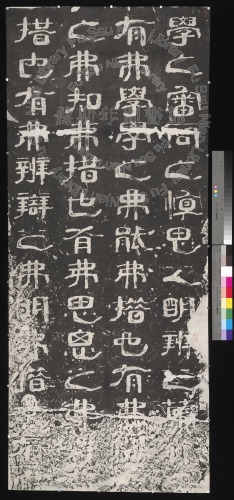 學之審問之慎思之明辨之篤
有弗學學之弗能弗措也有弗
之弗知弗措也有弗思思之弗
措也有弗辨辯之弗明弗措也有